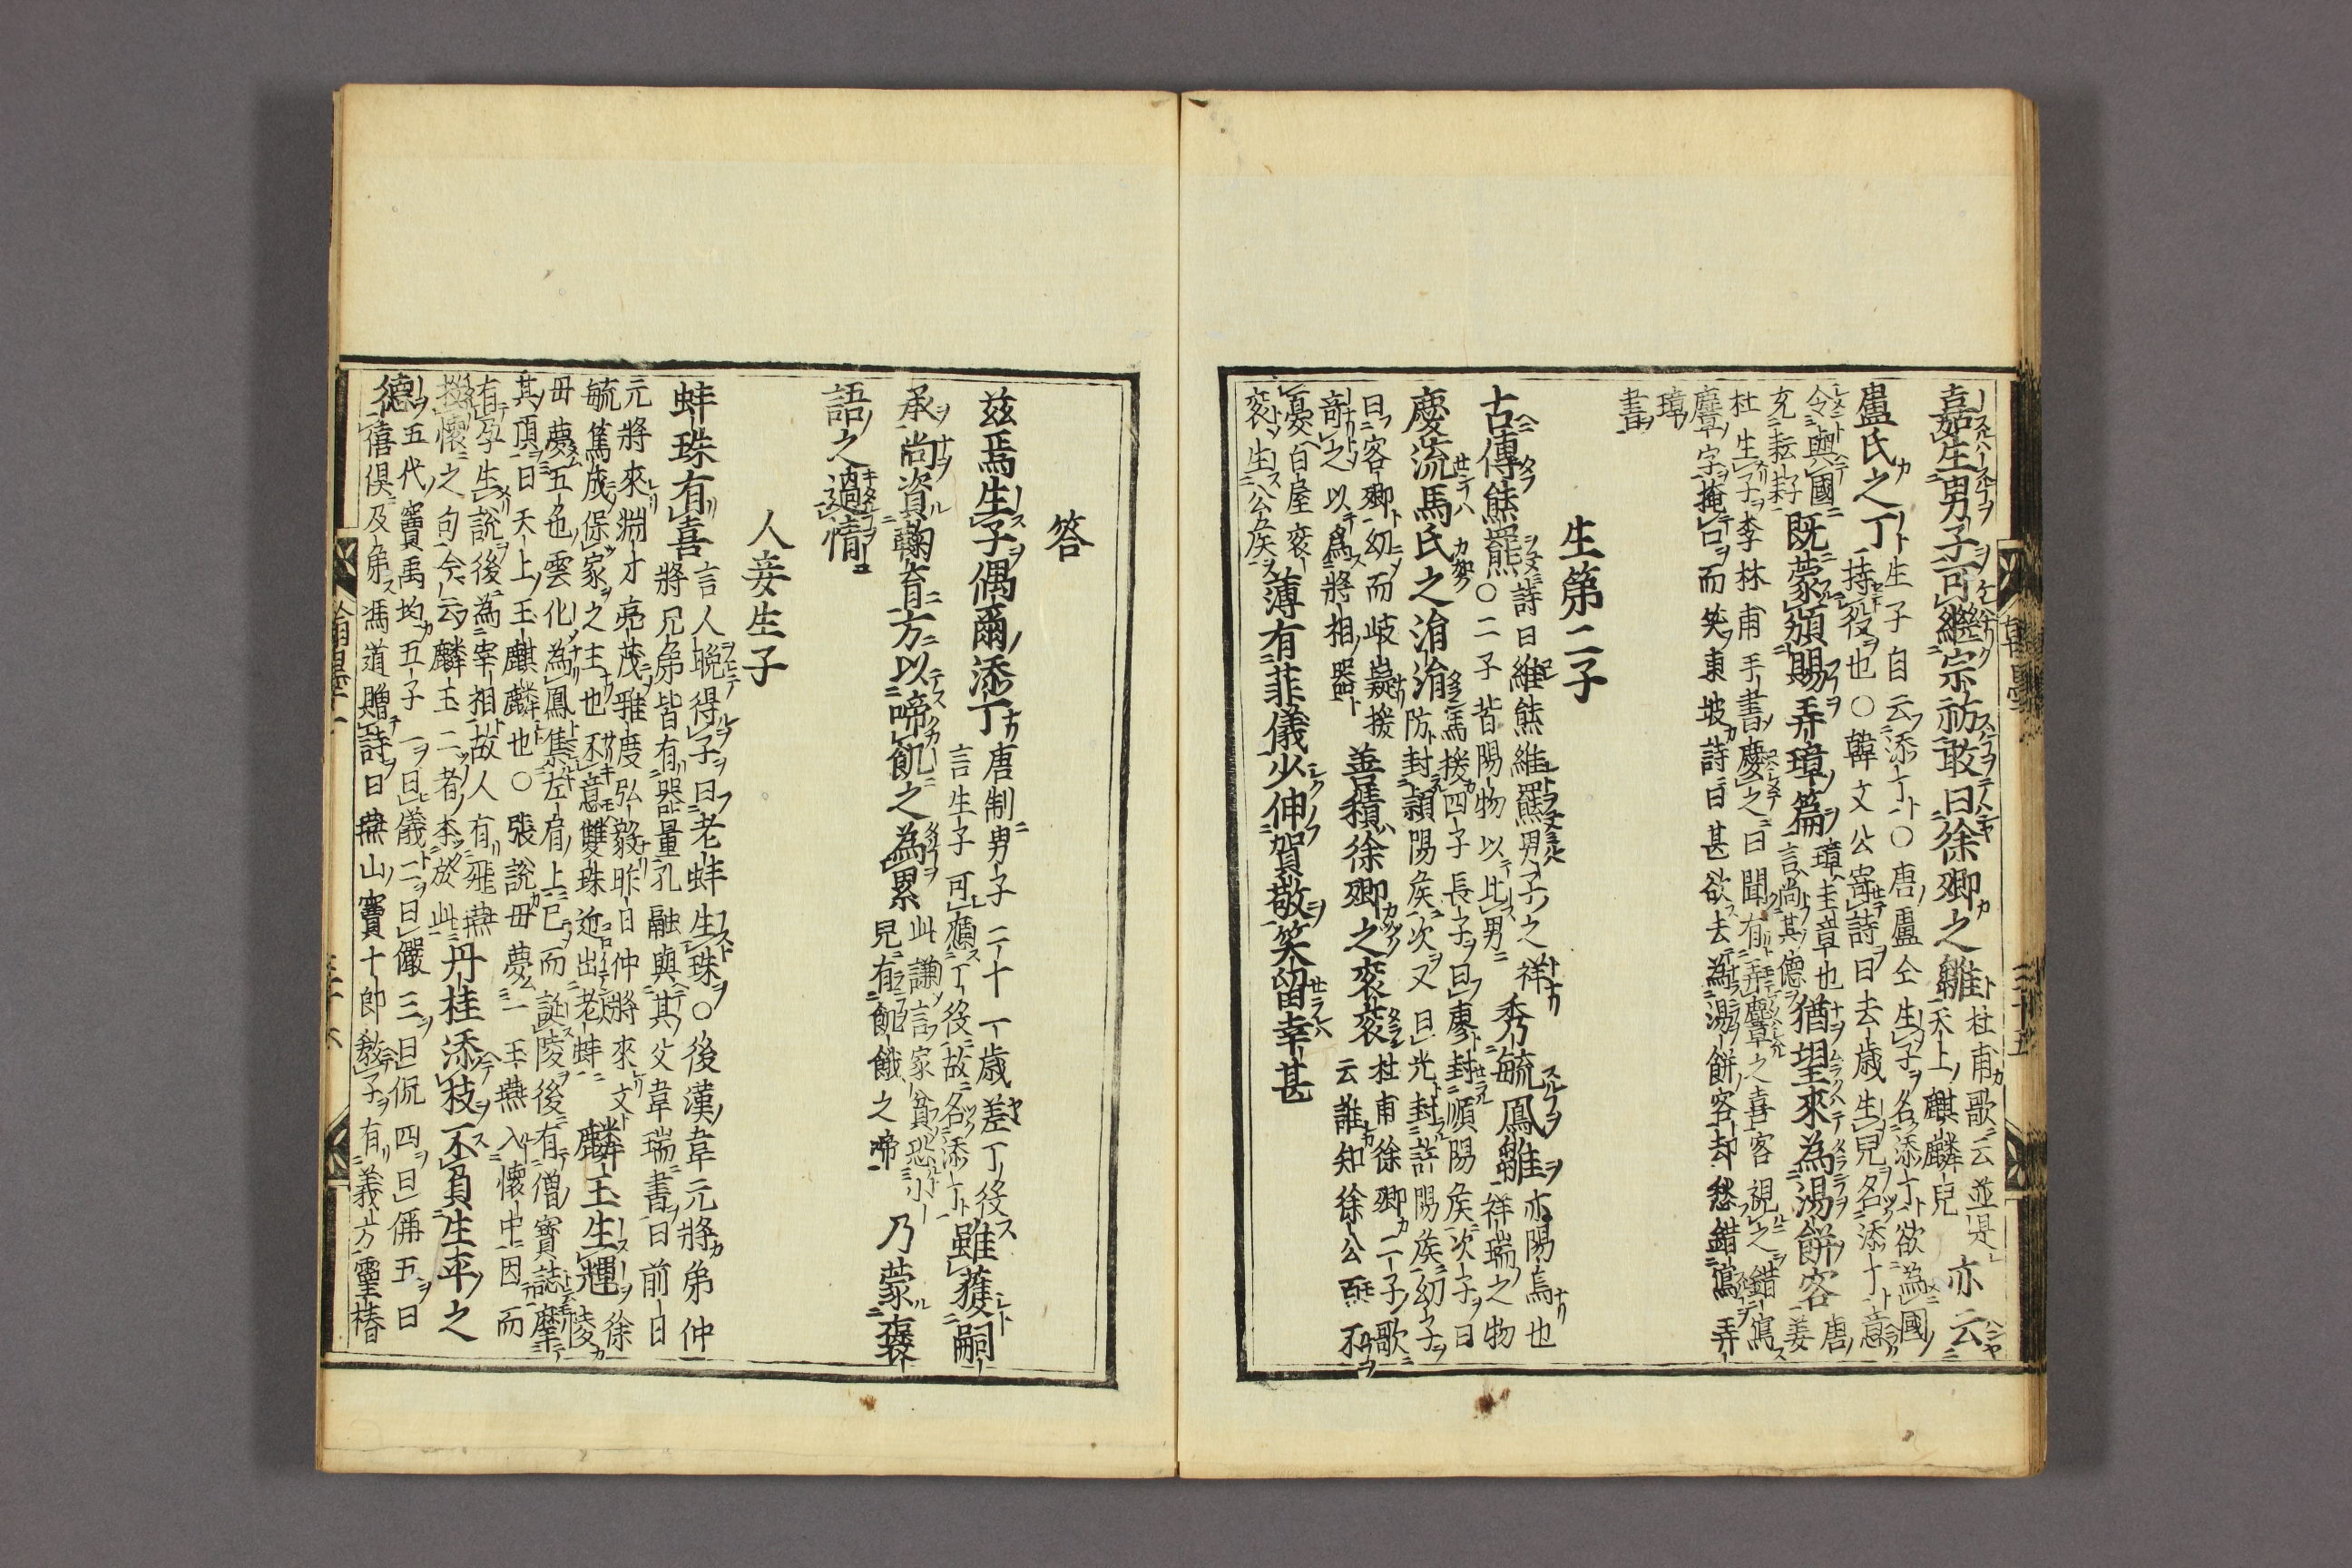 翰墨
三十五
嘉生男子可繼宗祊敢曰徐卿之雛
杜甫歌云並是
天上麒麟兒
亦云
盧氏之丁
生子自云添丁○唐盧仝生子名添丁欲為國
持役也○韓文公寄詩曰去歲生兒名添丁意
令與國
充耘耔
既蒙頒賜弄璋篇
璋圭章也
言尚其德
猶望來為湯餅客
唐
姜
杜生子李林甫手書慶之曰聞有弄麞之喜客視之錯寫
麞字掩口而笑東坡詩曰甚欲去為湯餅客却愁錯寫弄
璋
書
生第二子
古傳熊羆
詩曰維熊維羆男子之祥
○二子皆陽物以比男
秀毓鳳雛
亦陽鳥也
祥瑞之物
慶流馬氏之涓涓
馬援四子長子曰廖封順陽侯次子曰
防封潁陽侯次又曰光封許陽侯幼子
曰客卿幼而岐嶷援
奇之以為將相器
善積徐卿之袞袞
杜甫徐卿二子歌
云誰知徐公百不
憂百屋袞
袞生公侯
薄有菲儀少伸賀敬笑留幸甚
答
茲焉生子偶爾添丁
唐制男子二十一歲差丁役
言生子可應丁役故名添丁
雖獲嗣
承尚資鞠育方以啼飢之為累
此謙言家貧恐小
兒有飢餓之啼
乃蒙褒
語之過情
人妾生子
蚌珠有喜
言人晚得子曰老蚌生珠○後漢韋元將弟仲
將兄弟皆有器量孔融與其父韋瑞書曰前日
元將來淵才亮茂雅度弘毅昨日仲將來文
毓篤茂保家之主也不意雙珠近出老蚌
麟玉生輝
徐
陵
母夢五色雲化為鳳集左肩上已而誕陵後有僧寶誌摩
其頂曰天上玉麒麟也○張說母夢一玉燕入懷中因而
有孕生說後為宰相故人有飛燕
投懷之句今云麟玉二者本於此
丹桂添枝不負生平之
德
五代竇禹均五子一曰儀二曰儼三曰侃四曰偁五曰
僖俱及第馮道贈詩曰燕山竇十郎教子有義方靈椿